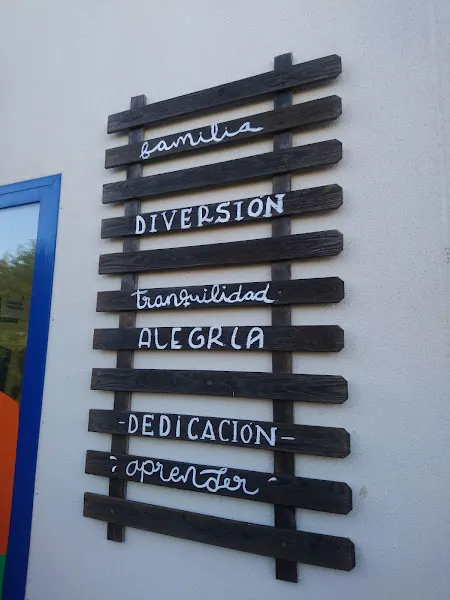 familia
DIVERSIÓN
tranquilidad
ALEGRÍA
-DEDICACIÓN-
aprender